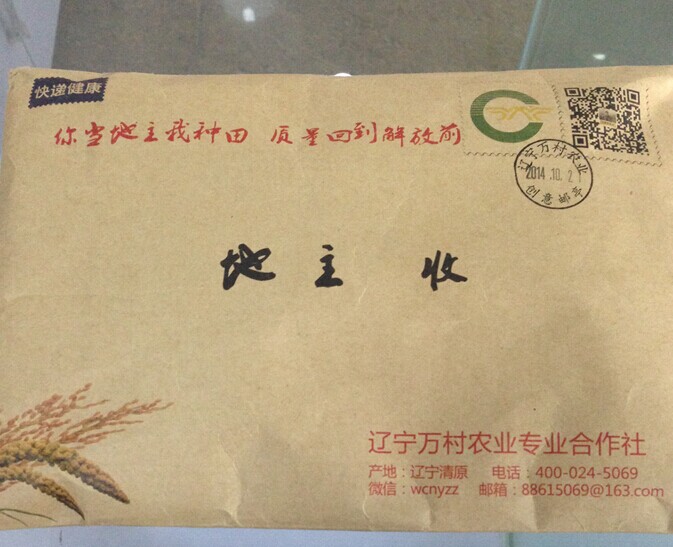 快递健康
你当地主我种田 质量回到解放前
辽宁万村农业
2014.10.2
创意邮寄
地主 收
辽宁万村农业专业合作社
产地：辽宁清原 电话：400-024-5069
微信：wcnyzz 邮箱：88615069@163.com